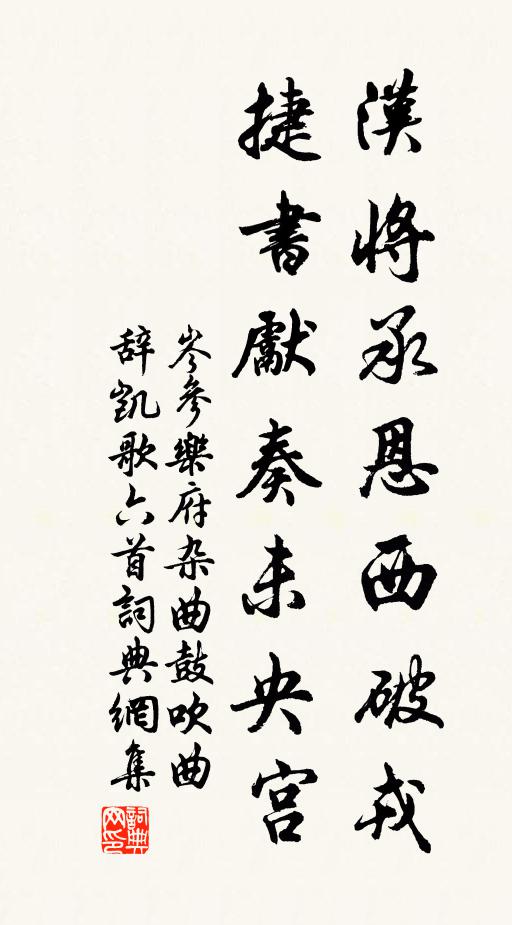 漢將承恩西破戎
捷書獻奏未央宮
岑參樂府杂曲鼓吹曲
辞凱歌六首詞典網集
詞典網印